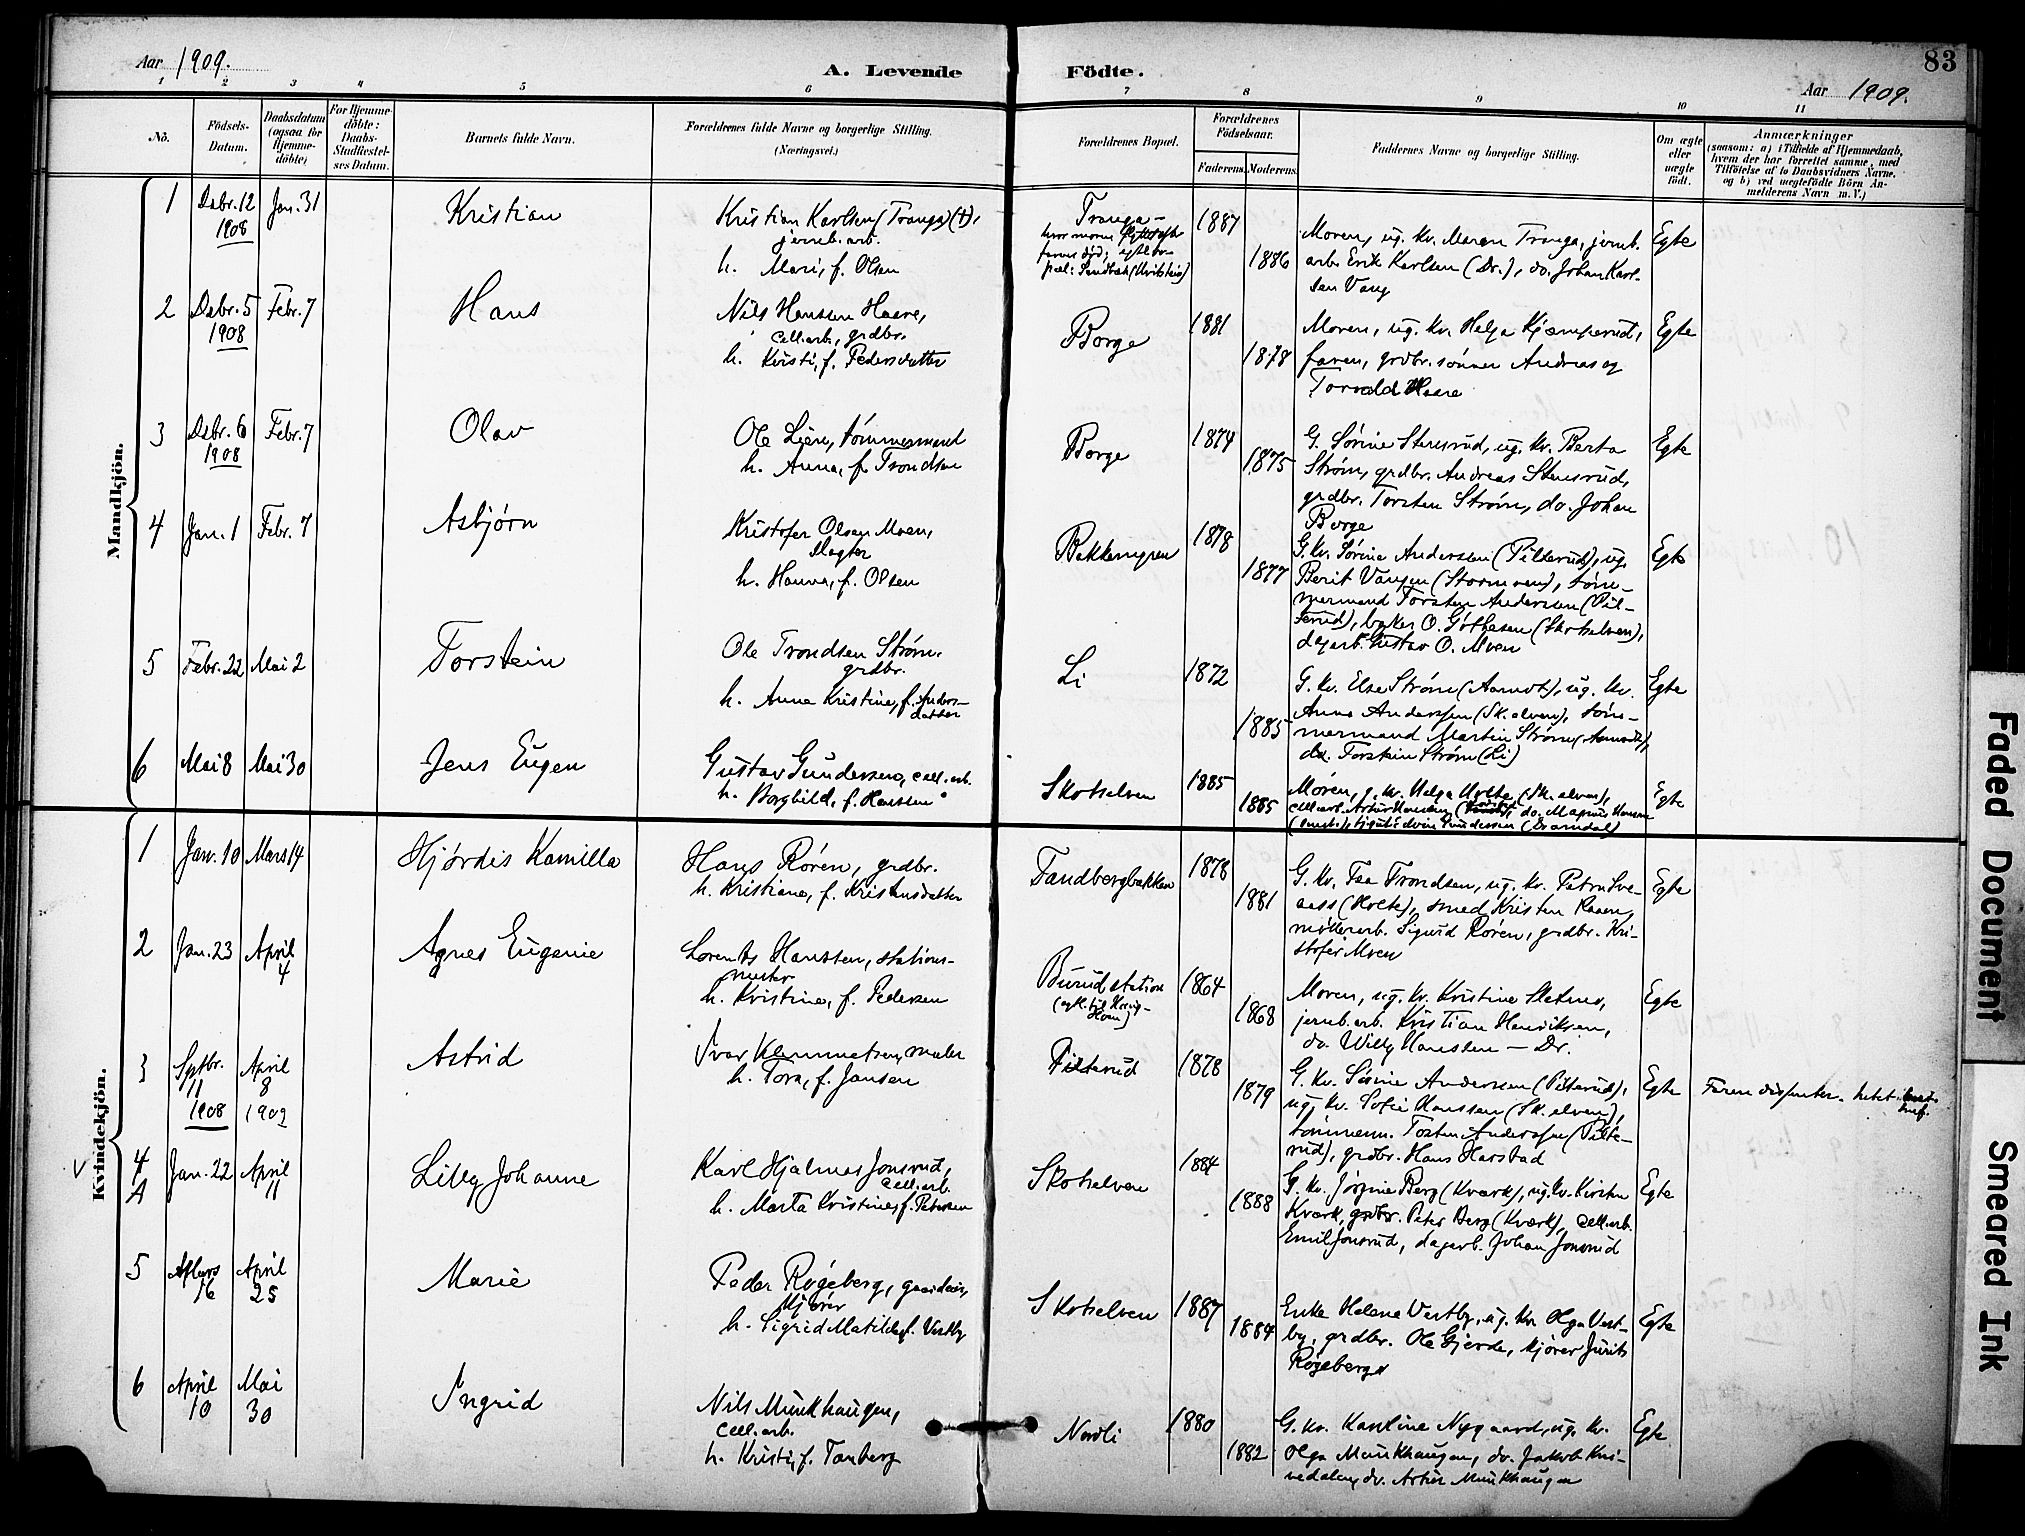 83
Aar 1909.
A. Levende Födte.
Aar 1909.
1 2 3 4 5 6 7 8 9 10 11
No.
Födsels-Datum.
Daabsdatum (ogsaa for Hjemme-döbte)
For Hjemme-döbte: Daabs-Stadfæstel-ses Datum.
Barnets fulde Navn.
Forældrenes fulde Navne og borgerlige Stilling.
(Næringsvei.)
Forældrenes Bopæl.
Forældrenes Födselsaar.
Faderens. Moderens.
Faddernes Navne og borgerlige Stilling.
Om ægte eller uægte födt.
Anmærkninger
(saasom: a) i Tilfælde af Hjemmedaab,
hvem der har forrettet samme, med
Tilföielse af to Daabsvidners Navne,
og b) ved uægtefödte Börn An-
melderens Navn m. V.)
Mandkjön.
1 Dsbr. 12 1908 Jan. 31 Kristian
Kristian Karlsen (Tranga) (†),
jernb. arb.
h. Mari, f. Olsen
Tranga -
1887 1886
Moren, ug. kv. Maren Tranga, jernb.
arb. Erik Karlsen (Dr.), do. Johan Karl-
sen Vang
Egte
2 Dsbr. 5 1908 Febr. 7 Hans
Nils Hansen Haare,
cell.arb, grdbr.
h. Kristi, f. Pedersdatter
Borge 1881 1878
Moren, ug. kv. Helga Kjemperud,
faren, grdbr.sönner Andreas og
Torvald Haare
Egte
3 Dsbr. 6 1908 Febr. 7 Olav
Ole Lien, tömmermand
h. Anna, f. Trondsen
Borge 1874 1875
G. Sørine Stensrud, ug. kv. Berta
Strøm, grdbr. Andreas Stensrud,
grdbr. Torsten Strøm, do. Johan
Borge
Egte
4 Jan. 1 Febr. 7 Asbjørn
Kristofer Olsen Moen,
slagter
h. Hanna, f. Olsen
Bakkemyren 1878 1877
G. kv. Sørine Anderssen (Pilterud), ug.
Berit Vangen (Stormoen), tøm-
mermand Torsten Anderssen (Pil-
terud), O. Gulbesen (Skotselven),
Gustav O. Moen
Egte
5 Febr. 22 Mai 2 Torstein
Ole Trondsen Strøm,
grdbr.
h. Anna Kristine, f. Anders-
datter
Li 1872 1885
G. kv. Else Strøm (Aamot), ug. kv.
Anna Anderssen (Sk.elven), tøm-
mermand Martin Strøm (Aamodt),
do. Torstein Strøm (Li)
Egte
6 Mai 8 Mai 30 Jens Eugen
Gustav Gundersen, cell.arb.
h. Borghild, f. Hanssen
Skotselven 1885 1885
Moren, g. kv. Helga Holte (Sk. elven),
do. Magnus Hansen
Egte
Kvindekjön.
1 Jan. 10 Mars 14 Hjørdis Kamilla
Hans Røren, grdbr.
h. Kristiane, f. Kristensdatter
Tandbergbakken 1878 1881
G. kv. Tea Trondsen, ug. kv. Petra Sve-
aass (Holte), smed Kristen
møllerarb. Sigurd Røren, grdbr. Kri-
stofer Moen
Egte
2 Jan. 23 April 4 Agnes Eugenie
Lorents Hanssen, stations-
mester
h. Kristine, f. Pedersen
Burud station
1864 1868
Moren, ug. kv. Kristine Sletmo,
jernb.arb. Kristian Henriksen,
do. Willy Hanssen — Dr.
Egte
3 Septbr. 11 1908 April 8 1909 Astrid
Ivar Klemmetsen, maler
h. Tora, f. Jansen
Pilterud 1878 1879
G. kv. Sørine Anderssen (Pilterud),
ug. kv. Sofie Hanssen (Sk.elven),
tömmerm. Torsten Anderssen (Pilte-
rud), grdbr. Hans Harstad
Egte
Faren dissenter.
V
4 A Jan. 22 April 11 Lilly Johanne
Karl Hjalmar Jonsrud,
cell.arb.
h. Marta Kristine, f. Petersen
Skotselven 1884 1888
G. kv. Jørgine Berg (Kværk), ug. kv. Kirsten
Kværk, grdbr. Peter Berg (Kværk), cell.arb.
Emil Jonsrud, dagarb. Johan Jonsrud
Egte
5 Mars 16 April 25 Marie
Peder Røgeberg,
kjører
h. Sigrid Matilde, f. Vestby
Skotselven 1887 1884
Enke Helene Vestby, ug. kv. Olga Vest-
by, grdbr. Ole Gjerde, kjører Jurits
Røgeberg
Egte
6 April 10 Mai 30 Ingrid
Nils Munkhaugen,
cell.arb.
h. Kristi, f. Tanberg
Nordli 1880 1882
G. kv. Karoline Nygaard, ug. kv.
Olga Munkhaugen, do. Jakob Kni-
vedalen, do. Artur Munkhaugen
Egte
Faded Document
Smeared Ink